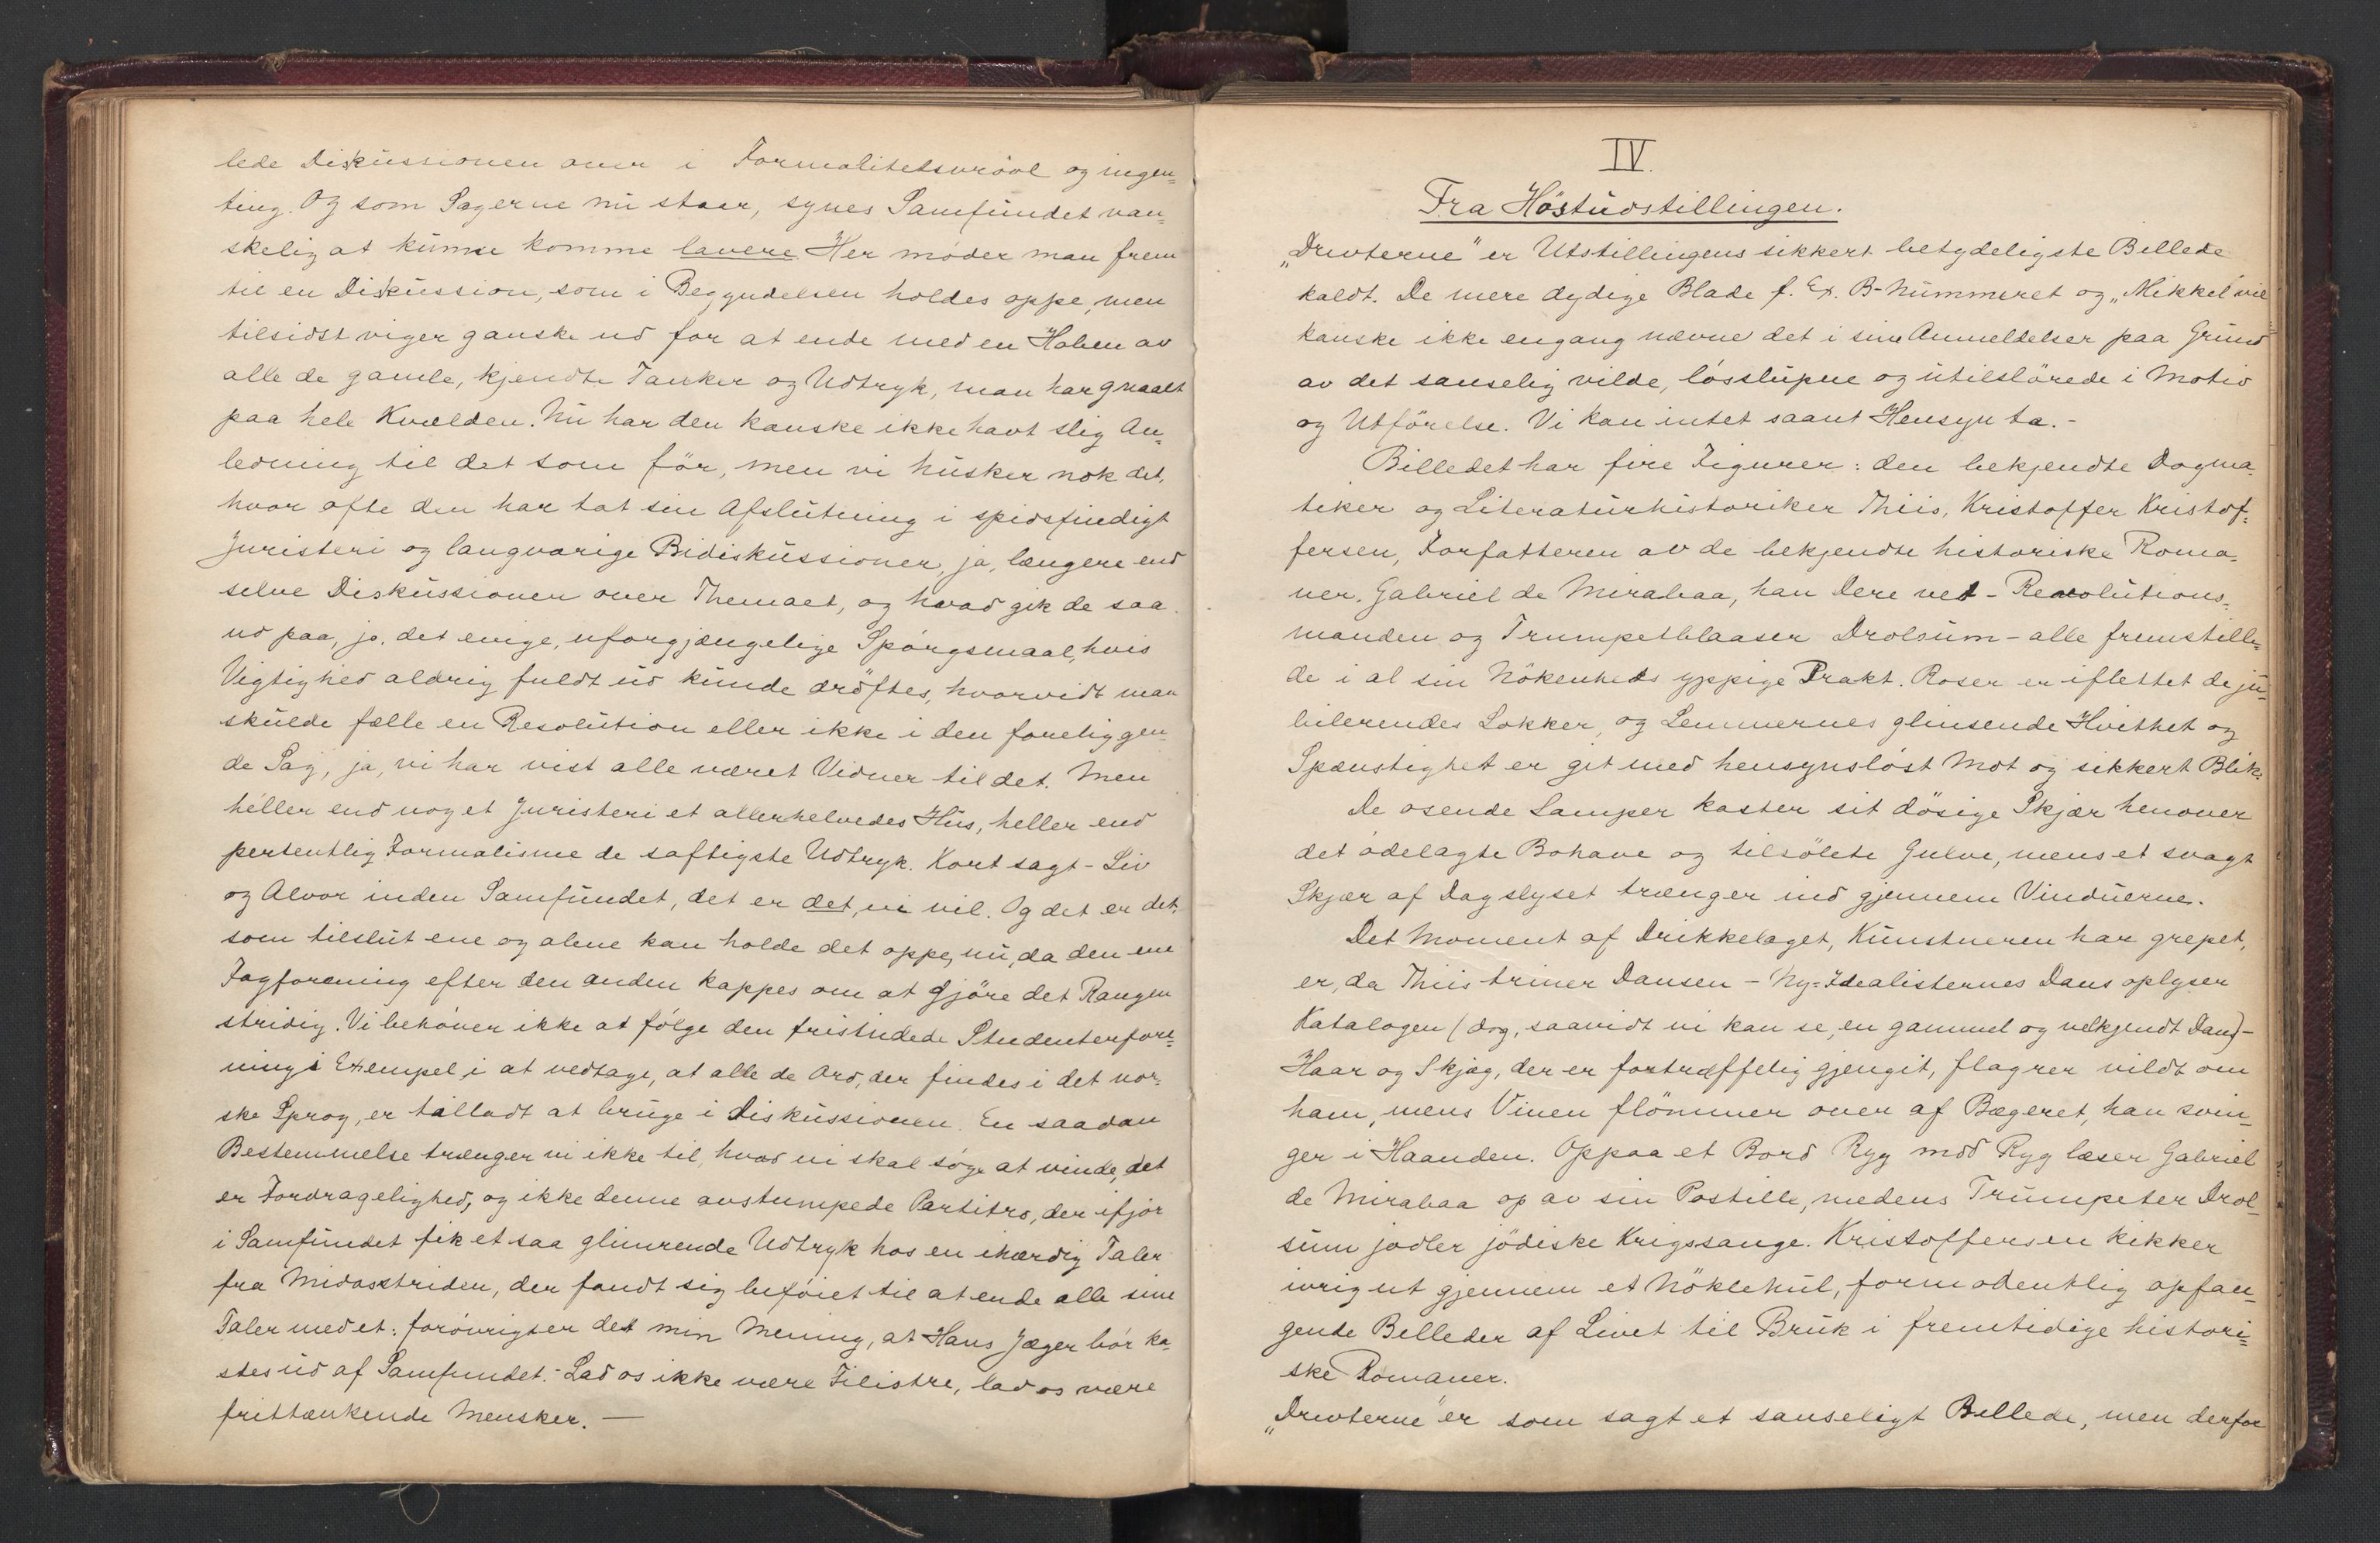 lede Diskussionen over i Formalitetsvrövl og ingen=
ting. Og som Sagerne nu staar, synes Samfundet van=
skelig at kunne komme lavere Her möder man frem
til en Diskussion, som i Begyndelsen holdes oppe, men
tilsidst viger ganske ud for at ende med en Haben av
alle de gamle, kjendte Tanker og Udtryk, man har gnaalt
paa hele Kvælden. Nu har den kanske ikke havt slig An=
ledning til det som för, men vi husker nok det,
hvor ofte den har tat sin Afslutning i spidsfindigt
Juristeri og langvarige Bidiskussioner, ja, længere end
selve Diskussionen over Themaet, og hvad gik de saa
ud paa, jo, det evige, uforgjængelige Spörgsmaal, hvis
Vigtighed aldrig fuldt ud kunde dröftes, hvorvidt man
skulde fælle en Resolution eller ikke i den foreliggen=
de Sag, ja, vi har vist alle været Vidner til det. Men
heller end noget Juristeri et allerhelvedes Hus, heller end
pertentlig Formalisme de saftigste Udtryk. Kort sagt - Liv
og Alvor inden Samfundet, det er det, vi vil. Og det er det,
som tilslut ene og alene kan holde det oppe, nu, da den ene
Fagforening efter den anden kappes om at gjöre det Rangen
stridig. Vi behöver ikke at fölge den fristindede Studenterfore=
nings Exempel i at vedtage, at alle de Ord, der findes i det nor=
ske Sprog, er tilladt at bruge i Diskussionen. En saadan
Bestemmelse trænger vi ikke til, hvad vi skal söge at vinde, det
er Fordragelighed, og ikke denne avstumpede Partitro, der ifjor
i Samfundet fik et saa glimrende Udtryk hos en ihærdig Taler
fra Midasstriden, der fandt sig beföiet til at ende alle sine
Taler med et: forövrigt er det min Mening, at Hans Jæger bör ka=
stes ud af Samfundet. - Lad os ikke være Filistre, lad os være
frittænkende Mensker. —
IV.
Fra Höstudstillingen.
„Drevterne" er Utstillingens sikkert betydeligste Billede
kaldt. De mere dydige Blade f. Ex. B-Nummeret og „Mikkel" vil
kanske ikke engang nævne det i sine Anmeldelser paa Grund
av det sanselig vilde, lösslupne og utilslörede i Motiv
og Utförelse. Vi kan intet saant Hensyn ta. -
Billedet har fire Figurer: den bekjendte Dogma=
tiker og Literaturhistoriker Thiis, Kristoffer Kristof=
fersen, Forfatteren av de bekjendte historiske Roma=
ner. Gabriel de Mirabaa, han Dere ved - Revolutions=
manden og Trumpetblaaser Drolsum - alle fremstille=
de i al sin Nökenheds yppige Prakt. Roser er iflettet de ju=
bilerendes Lokker, og Lemmernes glinsende Hvithet og
Spænstighet er git med hensynslöst Mot og sikkert Blik.
De osende Lamper kaster sit dösige Skjær henover
det ödelagte Bohave og tilsölete Gulve, mens et svagt
Skjær af Dagslyset trænger ind gjennem Vinduerne.
Det Moment af Drikkelaget, Kunstneren har grepet,
er, da Thiis triner Dansen - Ny-Idealisternes Dans oplyser
Katalogen (dog, saavidt vi kan se, en gammel og velkjendt Dans) -
Haar og Skjæg, der er fortræffelig gjengit, flagrer vildt om
ham, mens Vinen flömmer over af Bægeret, han svin=
ger i Haanden. Oppaa et Bord Ryg mod Ryg læser Gabriel
de Mirabaa op av sin Postille, medens Trumpeter Drol=
sum jodler jödiske Krigssange. Kristoffersen kikker
ivrig ut gjennem et Nöklehul, formodentlig opfan=
gende Billeder af Livet til Bruk i fremtidige histori=
ske Romaner.
„Drevterne" er som sagt et sanseligt Billede, men derfor